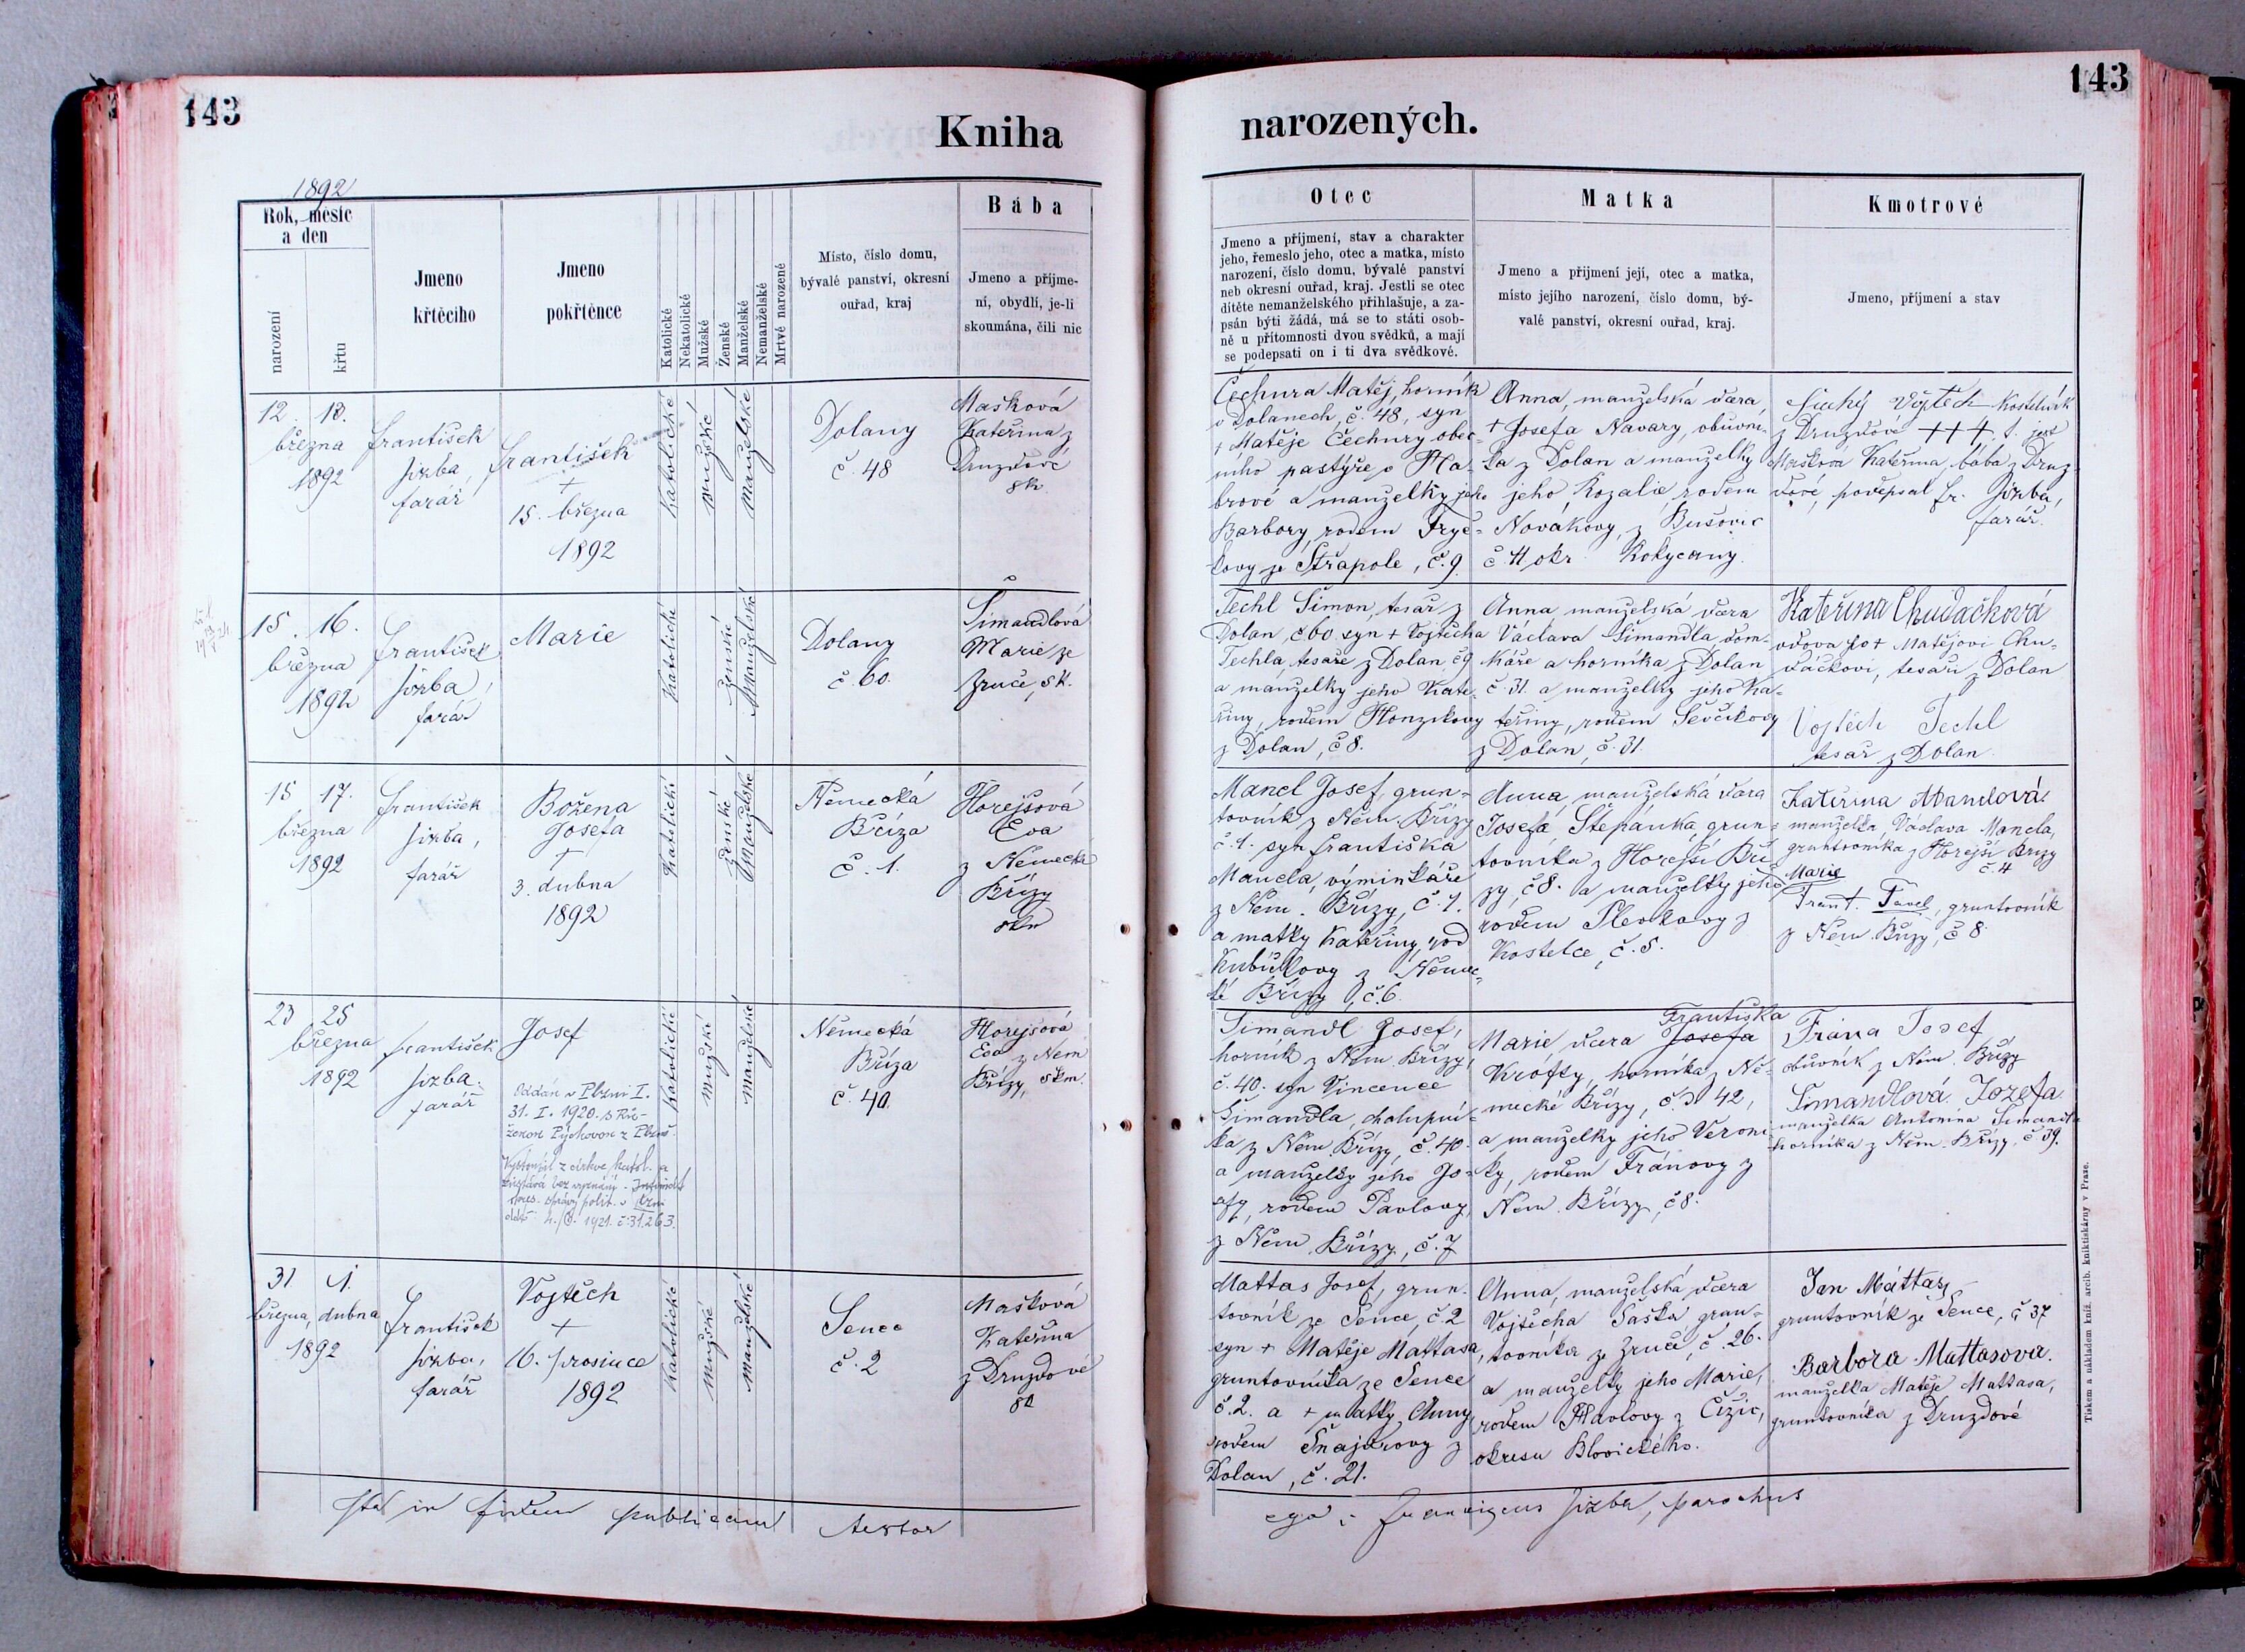 143
Kniha
1892
Rok, měsíc
a den
narození
křtu
Jmeno
křtěcího
Jmeno
pokřtěnce
Katolické
Nekatolické
Mužské
Ženské
Manželské
Nemanželské
Mrtvě narozené
Místo, číslo domu,
bývalé panství, okresní
ouřad, kraj
Bába
Jmeno a příjme-
ní, obydlí, je-li
skoumána, čili nic
12. 13.
března
1892
František
Jizba,
farář
František
+
15. března
1892
Katolické
mužské
manželské
Dolany
č. 48
Mašková
Kateřina z
Druzdové
sk.
15. 16.
března
1892
František
Jizba,
farář
Marie
Katolické
ženské
manželské
Dolany
č. 60.
Šimandlová
Marie ze
Zruče, sk.
15 17.
března
1892
František
Jizba,
farář
Božena
Josefa
+
3. dubna
1892
Katolické
ženské
manželské
Německá
Bříza
č. 1.
Horejšová
Eva
z Německé
Břízy
23 25
března
1892
František
Jizba.
farář
Josef
Oddán v Plzni I.
31. I. 1920. s Rů-
ženou Pýchovou z Plzně.
Vystoupil z církve katol. a
zůstává bez vyznání.
správy polit. v Plzni
1921. č. 31.263.
Katolické
mužské
manželské
Německá
Bříza
č. 40.
Horejšová
Eva z Něm
Břízy, škm.
31 1.
března, dubna
1892
František
Jizba,
farář
Vojtěch
+
16. prosince
1892
Katolické
mužské
manželské
Senec
č. 2
Mašková
Kateřina
z Druzdové
sk
in fidem publicam testor
143
narozených.
Otec
Jmeno a příjmení, stav a charakter
jeho, řemeslo jeho, otec a matka, místo
narození, číslo domu, bývalé panství
neb okresní ouřad, kraj. Jestli se otec
dítěte nemanželského přihlašuje, a za-
psán býti žádá, má se to státi osob-
ně u přítomnosti dvou svědků, a mají
se podepsati on i ti dva svědkové.
Matka
Jmeno a příjmení její, otec a matka,
místo jejího narození, číslo domu, bý-
valé panství, okresní ouřad, kraj.
Kmotrové
Jmeno, příjmení a stav
Čechura Matěj, horník
v Dolanech, č. 48, syn
+ Matěje Čechury obec-
ního pastýře v Ha-
brové a manželky jeho
Barbory, rodem Fryč-
kovy ze Střapole, č. 9
Anna, manželská dcera,
+ Josefa Navary, obuvní-
ka z Dolan a manželky
jeho Rozalie rodem
Novákovy, z Bušovic
č 11 okr. Rokycany.
Suchý Vojtěch kostelník
z Druzdové +++. t. jest
Mašková Kateřina, bába z Druz-
dové, podepsal fr. Jizba,
farář.
Techl Šimon, tesař z
Dolan, č 60. syn + Vojtěcha
Techla, tesaře z Dolan, č 9
a manželky jeho Kate-
řiny, rodem Honzíkovy
z Dolan, č 8.
Anna manželská dcera
Václava Šimandla, dom-
káře a horníka z Dolan
č. 31. a manželky jeho Ka-
teřiny, rodem Ševčíkovy
z Dolan, č. 31.
Kateřina Chudačková
vdova po + Matějovi Chu-
dáčkovi, tesaři z Dolan
Vojtěch Techl
tesař z Dolan
Mancl Josef, grun-
tovník z Něm. Břízy
č. 1. syn Františka
Mancla, výminkáře
z Něm. Břízy, č. 1.
a matky Kateřiny, rod
Kubíčkovy z Němec-
ké Břízy, č. 6.
Anna, manželská dcera
Josefa Štěpánka, grun-
tovníka z Horejší Bří-
zy, č 8. a manželky jeho Marie
rodem Plevkovy z
Kostelce, č. 5.
Kateřina Manclová
manželka, Václava Mancla,
gruntovníka z Horejší Břízy
č. 4
Frant. Pavel, gruntovník
z Něm. Břízy, č 8
Šimandl Josef,
horník z Něm. Břízy,
č. 40. syn Vincence
Šimandla, chalupní-
ka z Něm. Břízy, č. 40.
a manželky jeho Jo-
sefy, rodem Pavlovy,
z Něm. Břízy, č. 7
Františka
Marie dcera Josefa
Krófty, horníka z Ně-
mecké Břízy, č. 42,
a manželky jeho Veroni-
ky, rodem Fránovy z
Něm. Břízy, č 8.
Frána Josef
obuvník z Něm. Břízy
Šimandlová Jozefa
manželka Antonína Šimandla
horníka z Něm. Břízy, č 39.
Mattas Josef, grun-
tovník ze Sence, č 2
syn + Matěje Mattasa,
gruntovníka ze Sence
č. 2. a + matky Anny
rodem Šnajdrovy z
Dolan, č. 21.
Anna, manželská dcera
Vojtěcha Saška, grun-
tovníka ze Zruče, č 26.
a manželky jeho Marie,
rodem Havlovy z Čižic,
okresu Blovického.
Jan Máttas,
gruntovník ze Sence, č 37
Barbora Mattasova.
manželka Matěje Mattasa,
gruntovníka z Druzdové
ego: Franciscus Jizba, parochus
Tiskem a nákladem kníž. arcib. knihtiskárny v Praze.